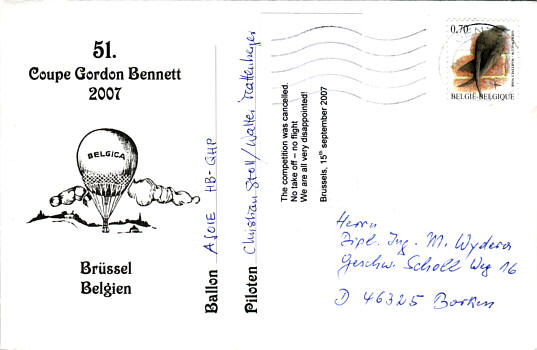 51.
Coupe Gordon Bennett
2007
BELGICA
Brüssel
Belgien
Ballon AJOIE HB-QHP
Piloten Christian Stoll/Walter
The competition was cancelled.
No take off – no flight
We are all very disappointed!
Brussels, 15th september 2007
0.70
BELGIE-BELGIQUE
Herrn
Dipl. Ing. M. Wydera
Geschw. Scholl Weg 16
D 46325 Borken